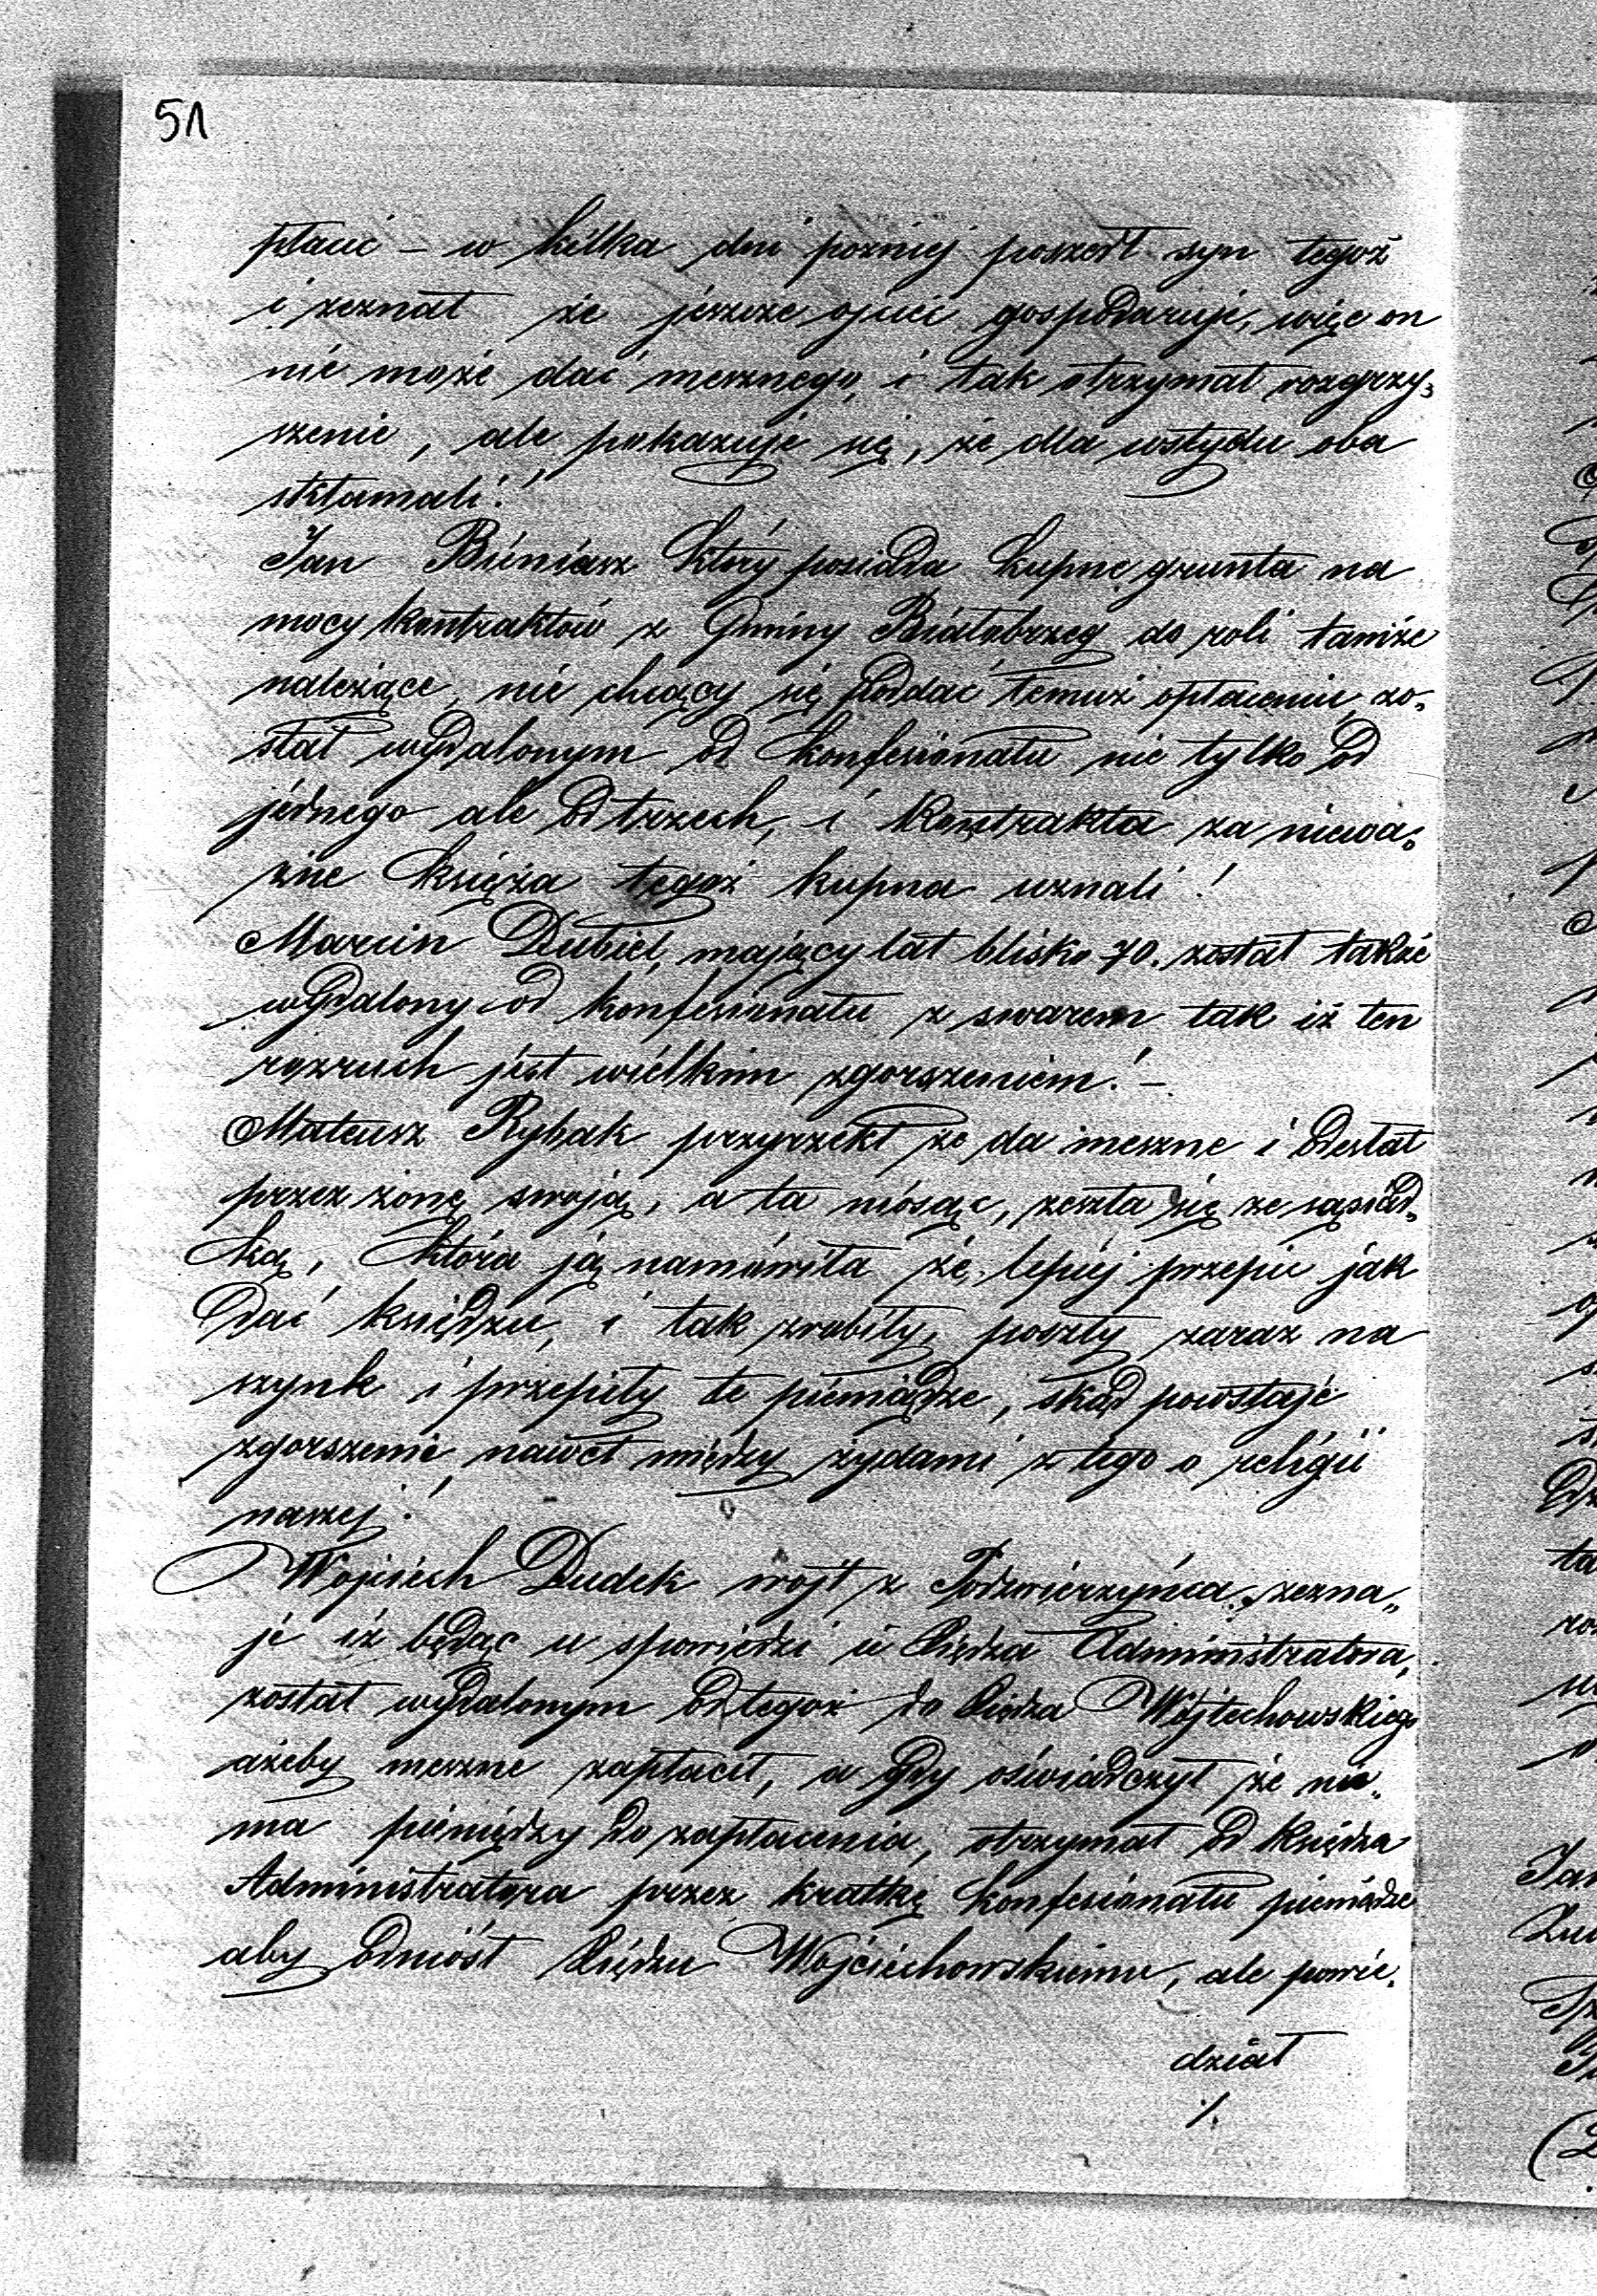 51
płacić – w kilka dni pozniej poszedł syn tegoż
i zeznał że jeszcze ojciec gospodaruje, więc on
nie może dać mesznego, i tak otrzymał rozgrzy„
szenie, ale pokazuje się, że dla wstydu oba
skłamali!
Jan Bieniasz który posiada kupne grunta na
mocy kontraktów z Gminy Białobrzeg do roli tamże
należące, nie chcący się poddać temuż opłaceniu, zo„
stał wydalonym od konfesionału nie tylko od
jednego ale od trzech, i kontrakta za niewa„
żne księża tegoż kupna uznali!
Marcin Dubiel, mający lat blisko 70. został także
wydalony od konfesionału z swarem tak iż ten
rozruch jest wielkim zgorszeniem! –
Mateusz Rybak przyrzekł że da meszne i odesłał
przez żonę swoją, a ta niosąc, zeszła się ze sąsiad„
ką, która ją namówiła że lepiej przepić jak
dać księdzu, i tak zrobiły, poszły zaraz na
szynk i przepiły te pieniądze, skąd powstaje
zgorszenie nawet między żydami z tego o religii
naszej!
Wojciech Dudek wojt z Podzwierzyńca zezna„
je iż będąc u spowiedzi u Księdza Administratora,
został wydalonym od tegoż do Księdza Wojtechowskiego
ażeby meszne zapłacił, a gdy oświadczył że nie„
ma pieniędzy do zapłacenia, otrzymał od księdza
Administratora przez kratkę konfesionału pieniądze
aby odniósł Księdzu Wojciechowskiemu, ale powie„
dział
./.